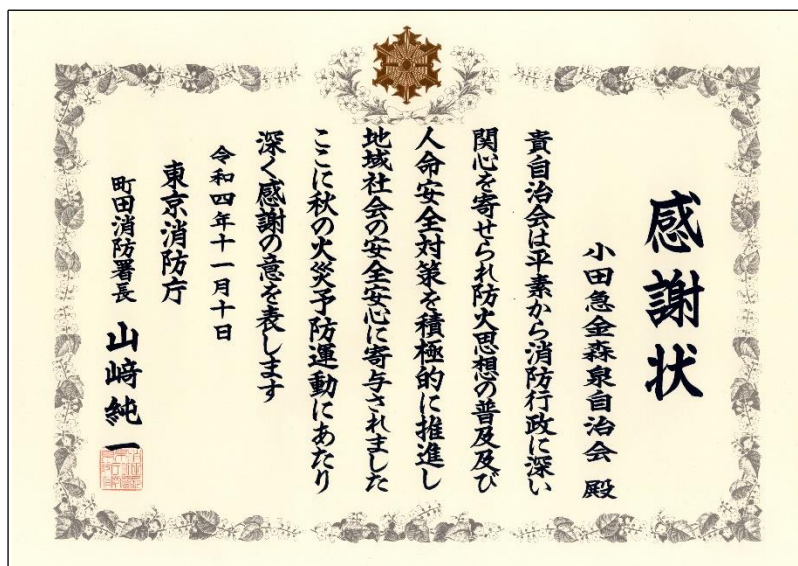 感謝状
小田急金森泉自治会 殿
貴自治会は平素から消防行政に深い
関心を寄せられ防火思想の普及及び
人命安全対策を積極的に推進し
地域社会の安全安心に寄与されました
ここに秋の火災予防運動にあたり
深く感謝の意を表します
令和四年十一月十日
東京消防庁
町田消防署長 山﨑純一